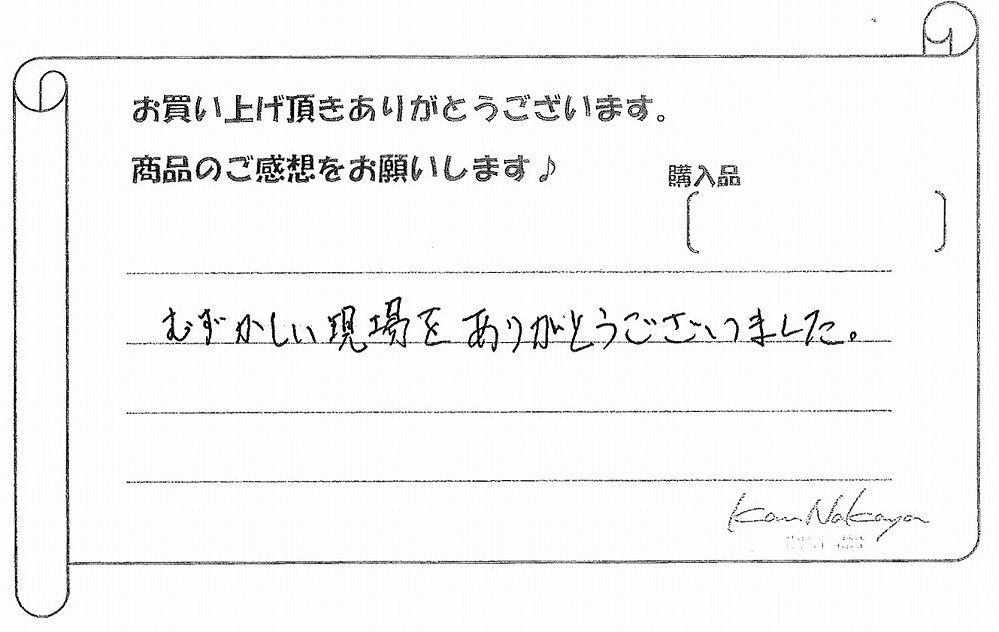 お買い上げ頂きありがとうございます。
商品のご感想をお願いします♪
購入品
むずかしい現場をありがとうございました。
KamNakaya